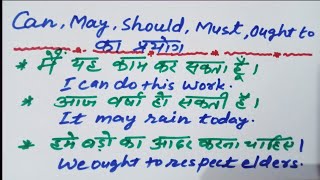 Can, May, Should, Must, Ought to
का प्रयोग
* मैं यह काम कर सकता हूँ।
I can do this work.
* आज वर्षा हो सकती है।
It may rain today.
* हमे बड़ो का आदर करना चाहिए।
We ought to respect elders.